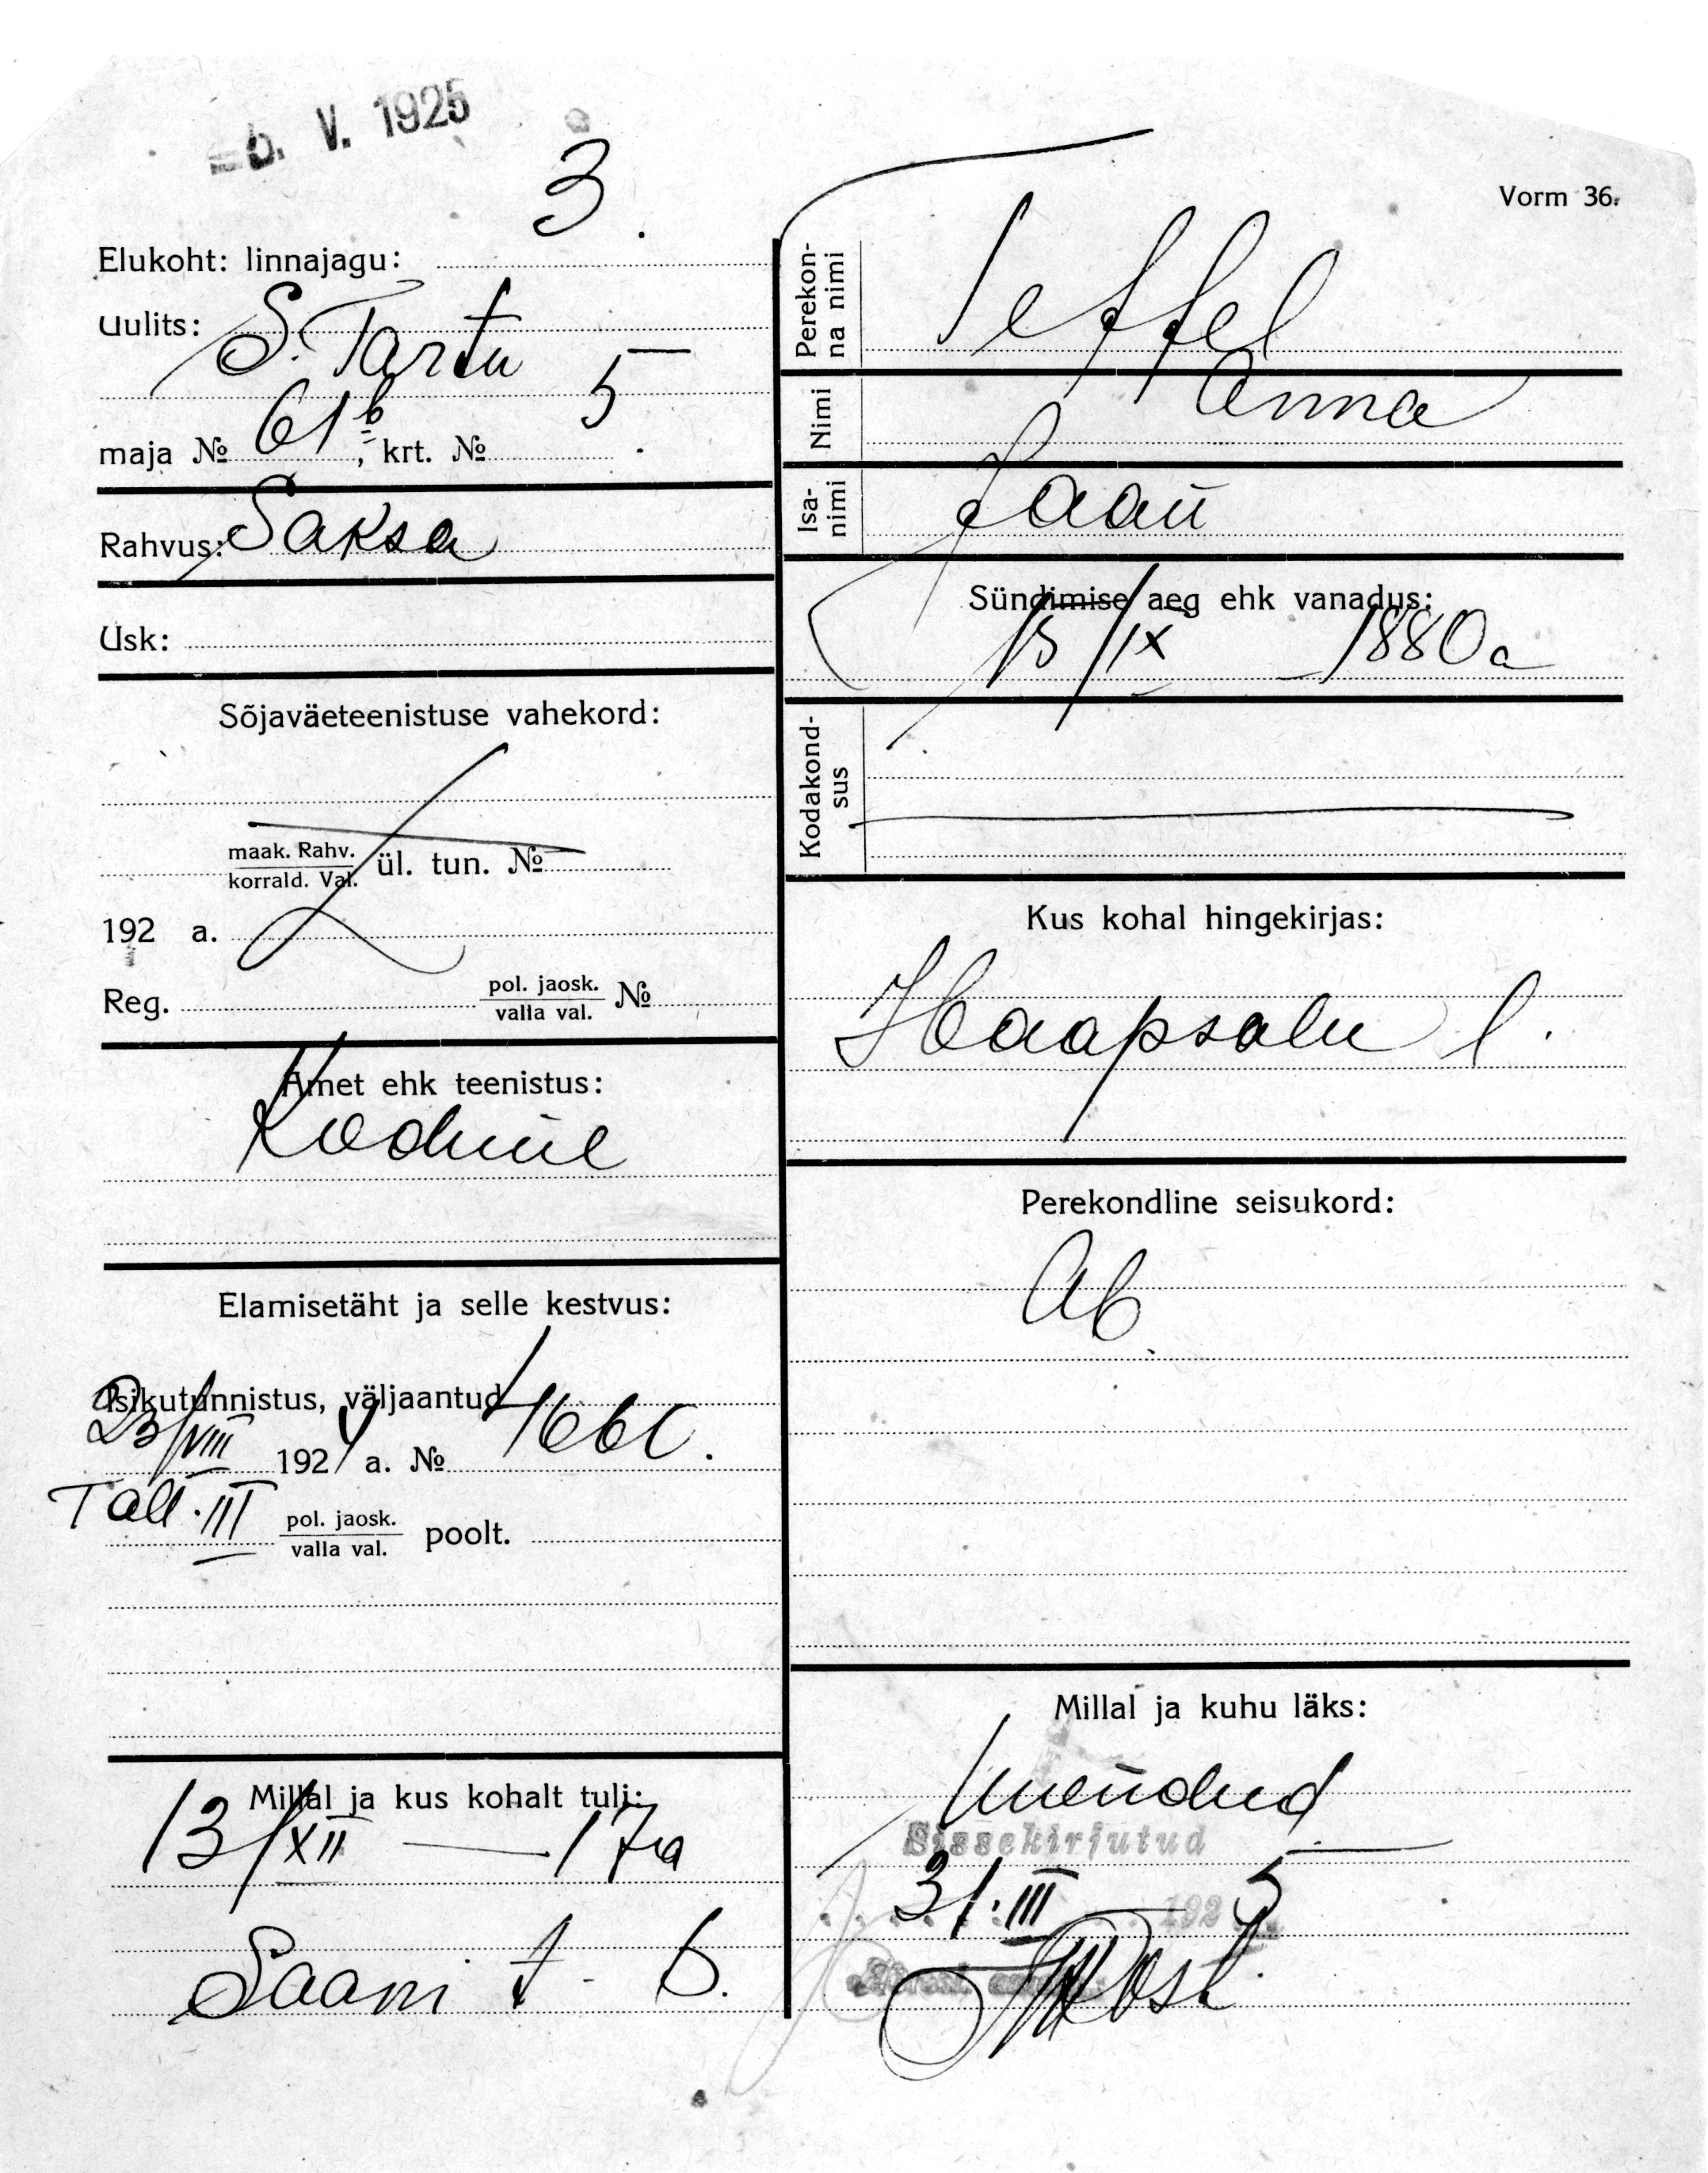 V. 1925
3.
Vorm 36.
Elukoht: linnajagu:
Uulits: S. Tartu
maja № 61b, krt. № 5
Rahvus: Saksa
Usk:
Sõjaväeteenistuse vahekord:
maak. Rahv.
korrald. Val. ül. tun. №
192 a.
Reg. pol. jaosk.
valla val. №
Amet ehk teenistus:
Elamisetäht ja selle kestvus:
Isikutunnistus, väljaantud
23/VIII 192 a. №
Tall. III pol. jaosk.
valla val. poolt.
Millal ja kus kohalt tuli:
13/XII — 17 a
Saani t - 6.
Perekon-
na nimi
Nimi Anna
Isa-
nimi Jaan
Sündimise aeg ehk vanadus:
15/IX 1880 a
Kodakond-
sus
Kus kohal hingekirjas:
Haapsalu l.
Perekondline seisukord:
Ab.
Millal ja kuhu läks:
Sissekirjutud
31. III 192 5